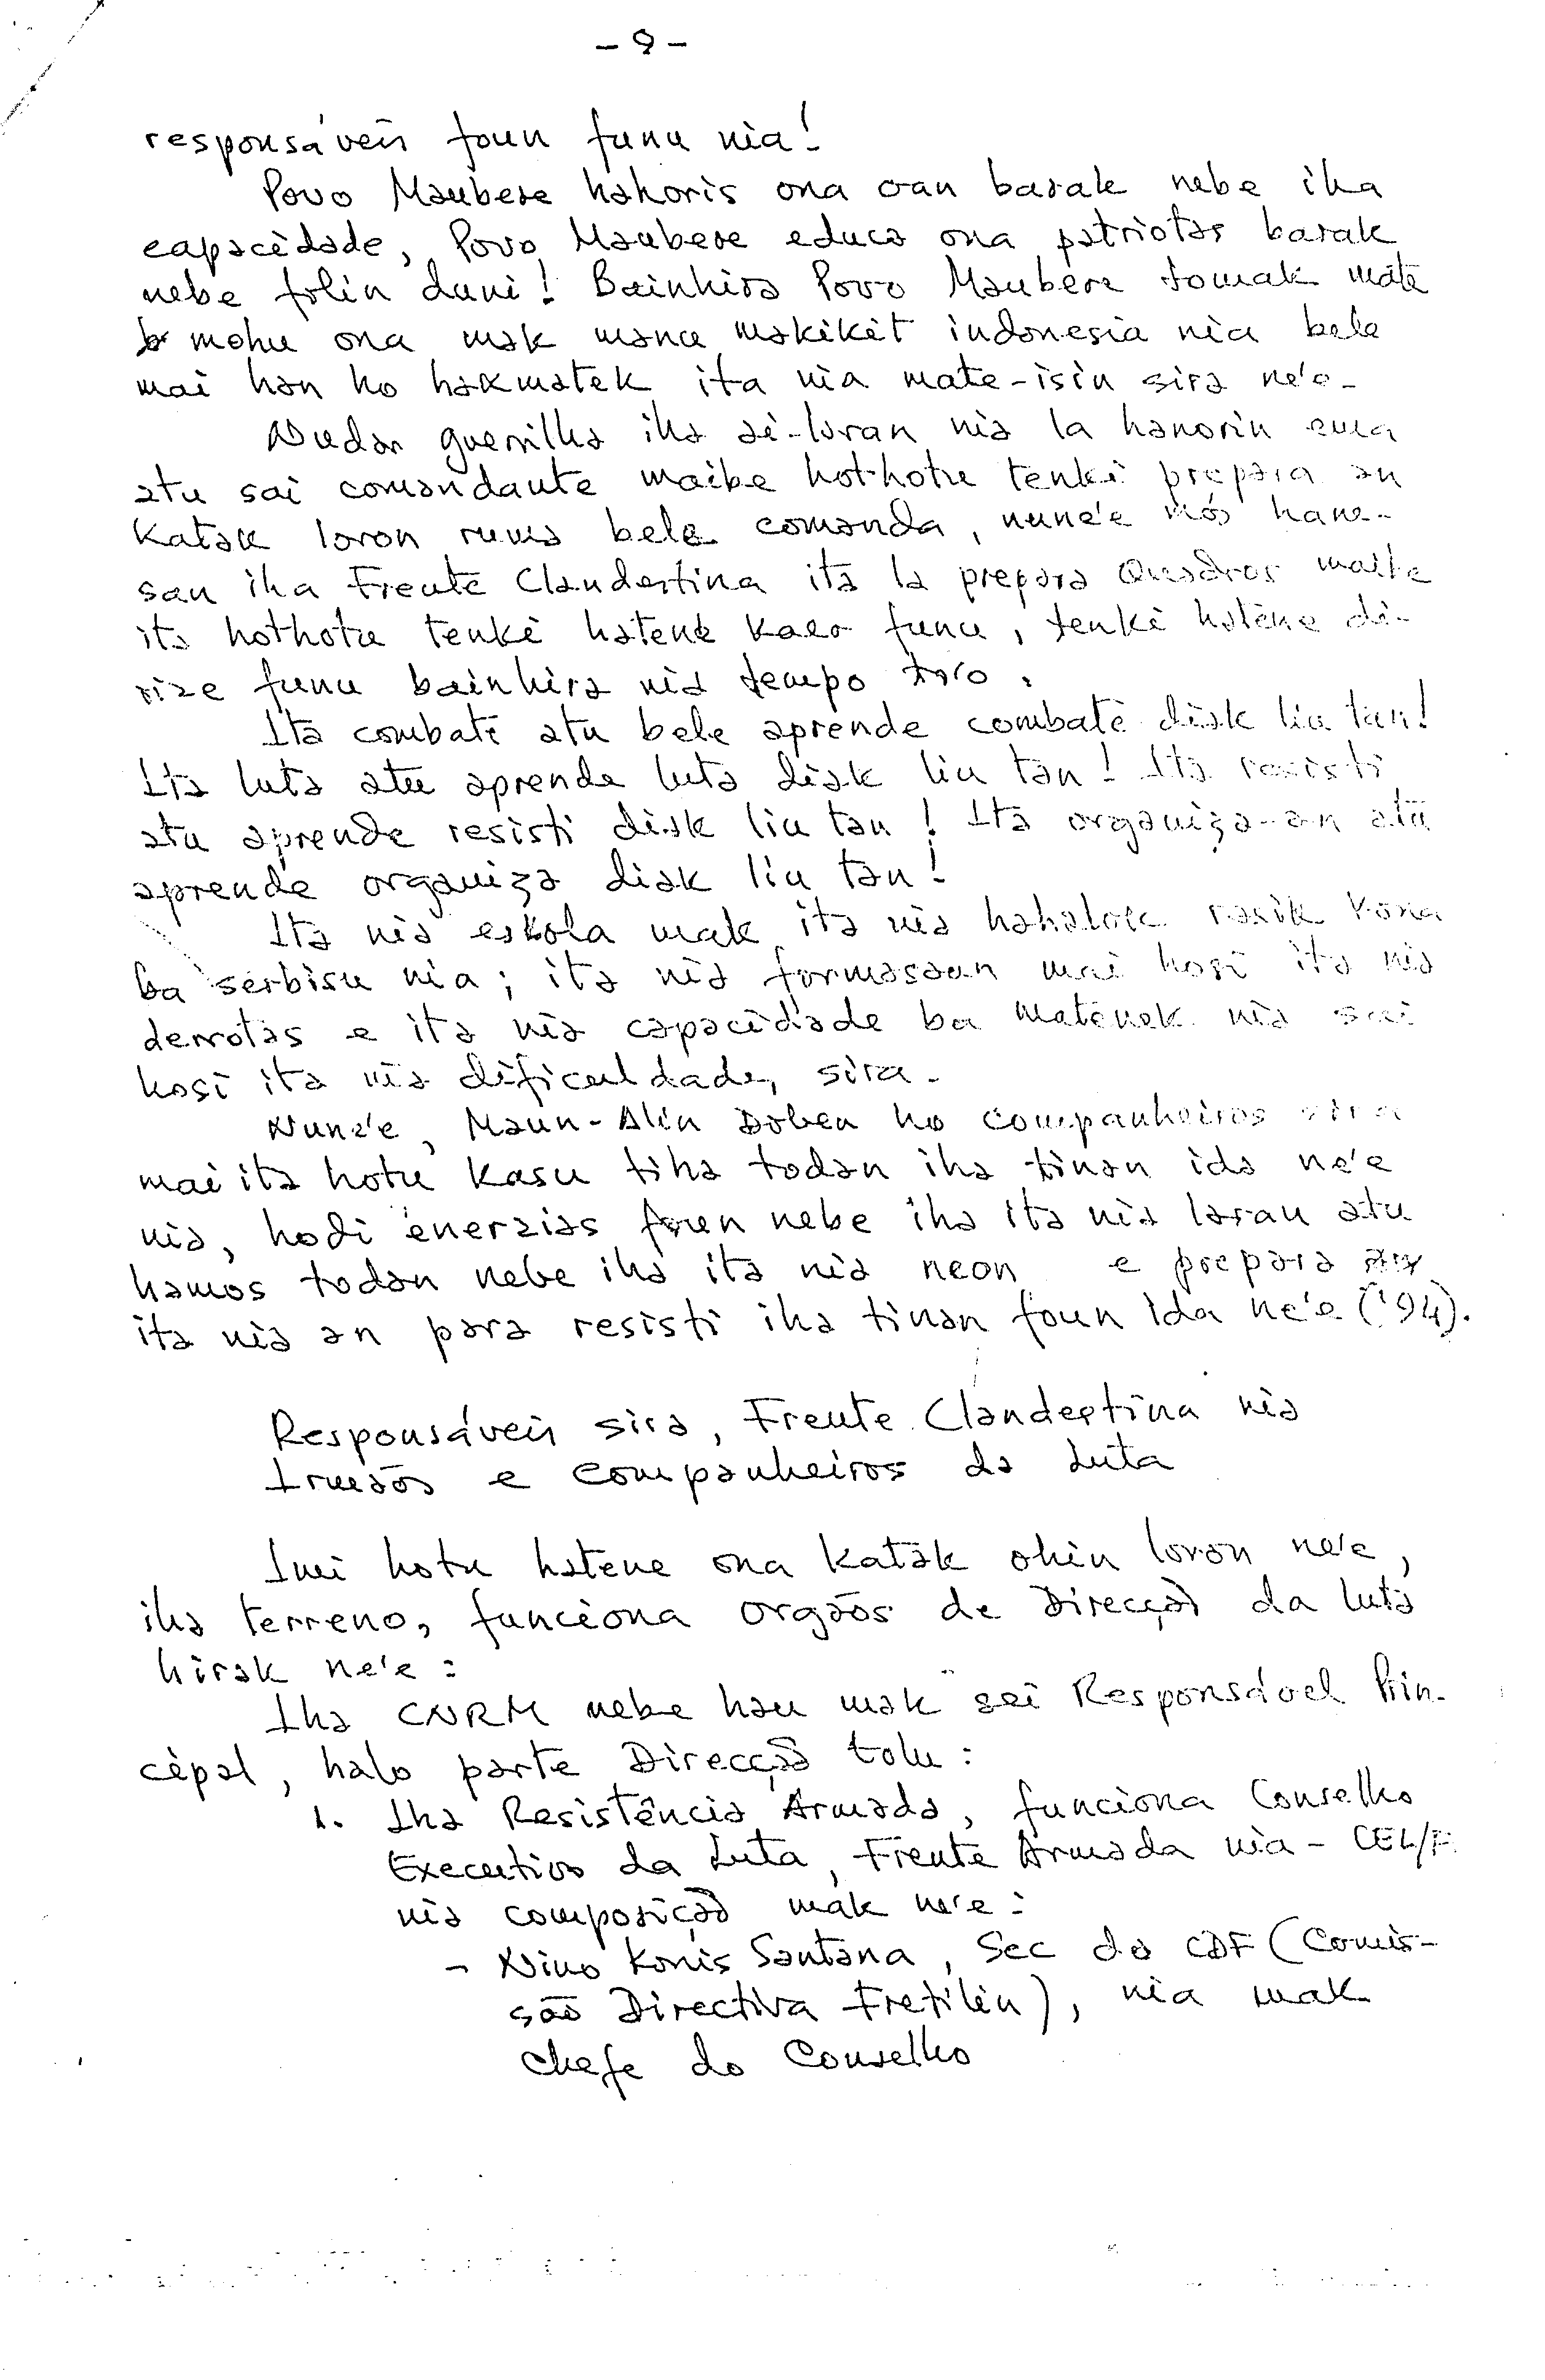 - 9 -
responsáveis foun funu nia!
Povo Maubere hahoris ona oan barak nebe iha
capacidade, Povo Maubere educa ona patriotas barak
nebe folin duni! Bainhira Povo Maubere tomak mate
mohu ona mak manu makikit indonesia nia bele
mai han ho hakmatek ita nia mate-isin sira ne'e.
Nudar guerrilha iha ai-laran nia la hanorin ema
atu sai comandante maibe hothotu tenki prepara an
katak loron ruma bele comanda, nune'e mós hane-
san iha Frente Clandestina ita la prepara Quadros maibe
ita hothotu tenki hatene kaer funu, tenki hatene di-
rize funu bainhira nia tempo to'o.
Ita combate atu bele aprende combate diak liu tan!
Ita luta atu aprende luta diak liu tan! Ita resisti
atu aprende resisti diak liu tan! Ita organiza-an atu
aprende organiza diak liu tan!
Ita nia eskola mak ita nia hahalok rasik kona
ba serbisu nia; ita nia formasaun mai hosi ita nia
derrotas e ita nia capacidade ba matenek nia sai
hosi ita nia dificuldades sira.
Nune'e, Maun-Alin Doben ho companheiros sira
mai ita hotu kasu tiha todan iha tinan ida ne'e
nia, hodi enerzias foun nebe iha ita nia laran atu
hamos todan nebe iha ita nia neon e prepara
ita nia an para resisti iha tinan foun ida ne'e ('94).
Responsáveis sira, Frente Clandestina nia
Irmãos e companheiros da Luta
Imi hotu hatene ona katak ohin loron ne'e,
iha terreno, funciona orgãos de Direcção da luta
hirak ne'e:
Iha CNRM nebe hau mak sei Responsável Prin-
cipal, halo parte Direcção tolu:
1. Iha Resistência Armada, funciona Conselho
Executivo da Luta, Frente Armada nia - CEL/F.
nia composição mak ne'e:
- Nino Konis Santana, Sec da CDF (Comis-
são Directiva Fretilin), nia mak
chefe do Conselho